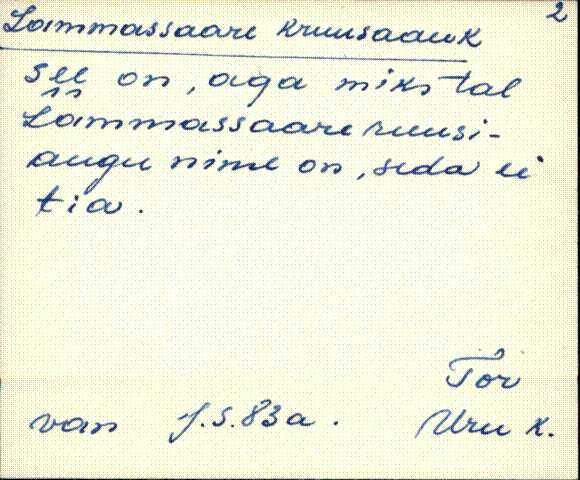 Lammassaare kruusaauk 2
See on, aga miks tal
Lammassaare ruusi-
augu nime on, seda ei
tia.
Tor
van J.S. 83a. Uru k.